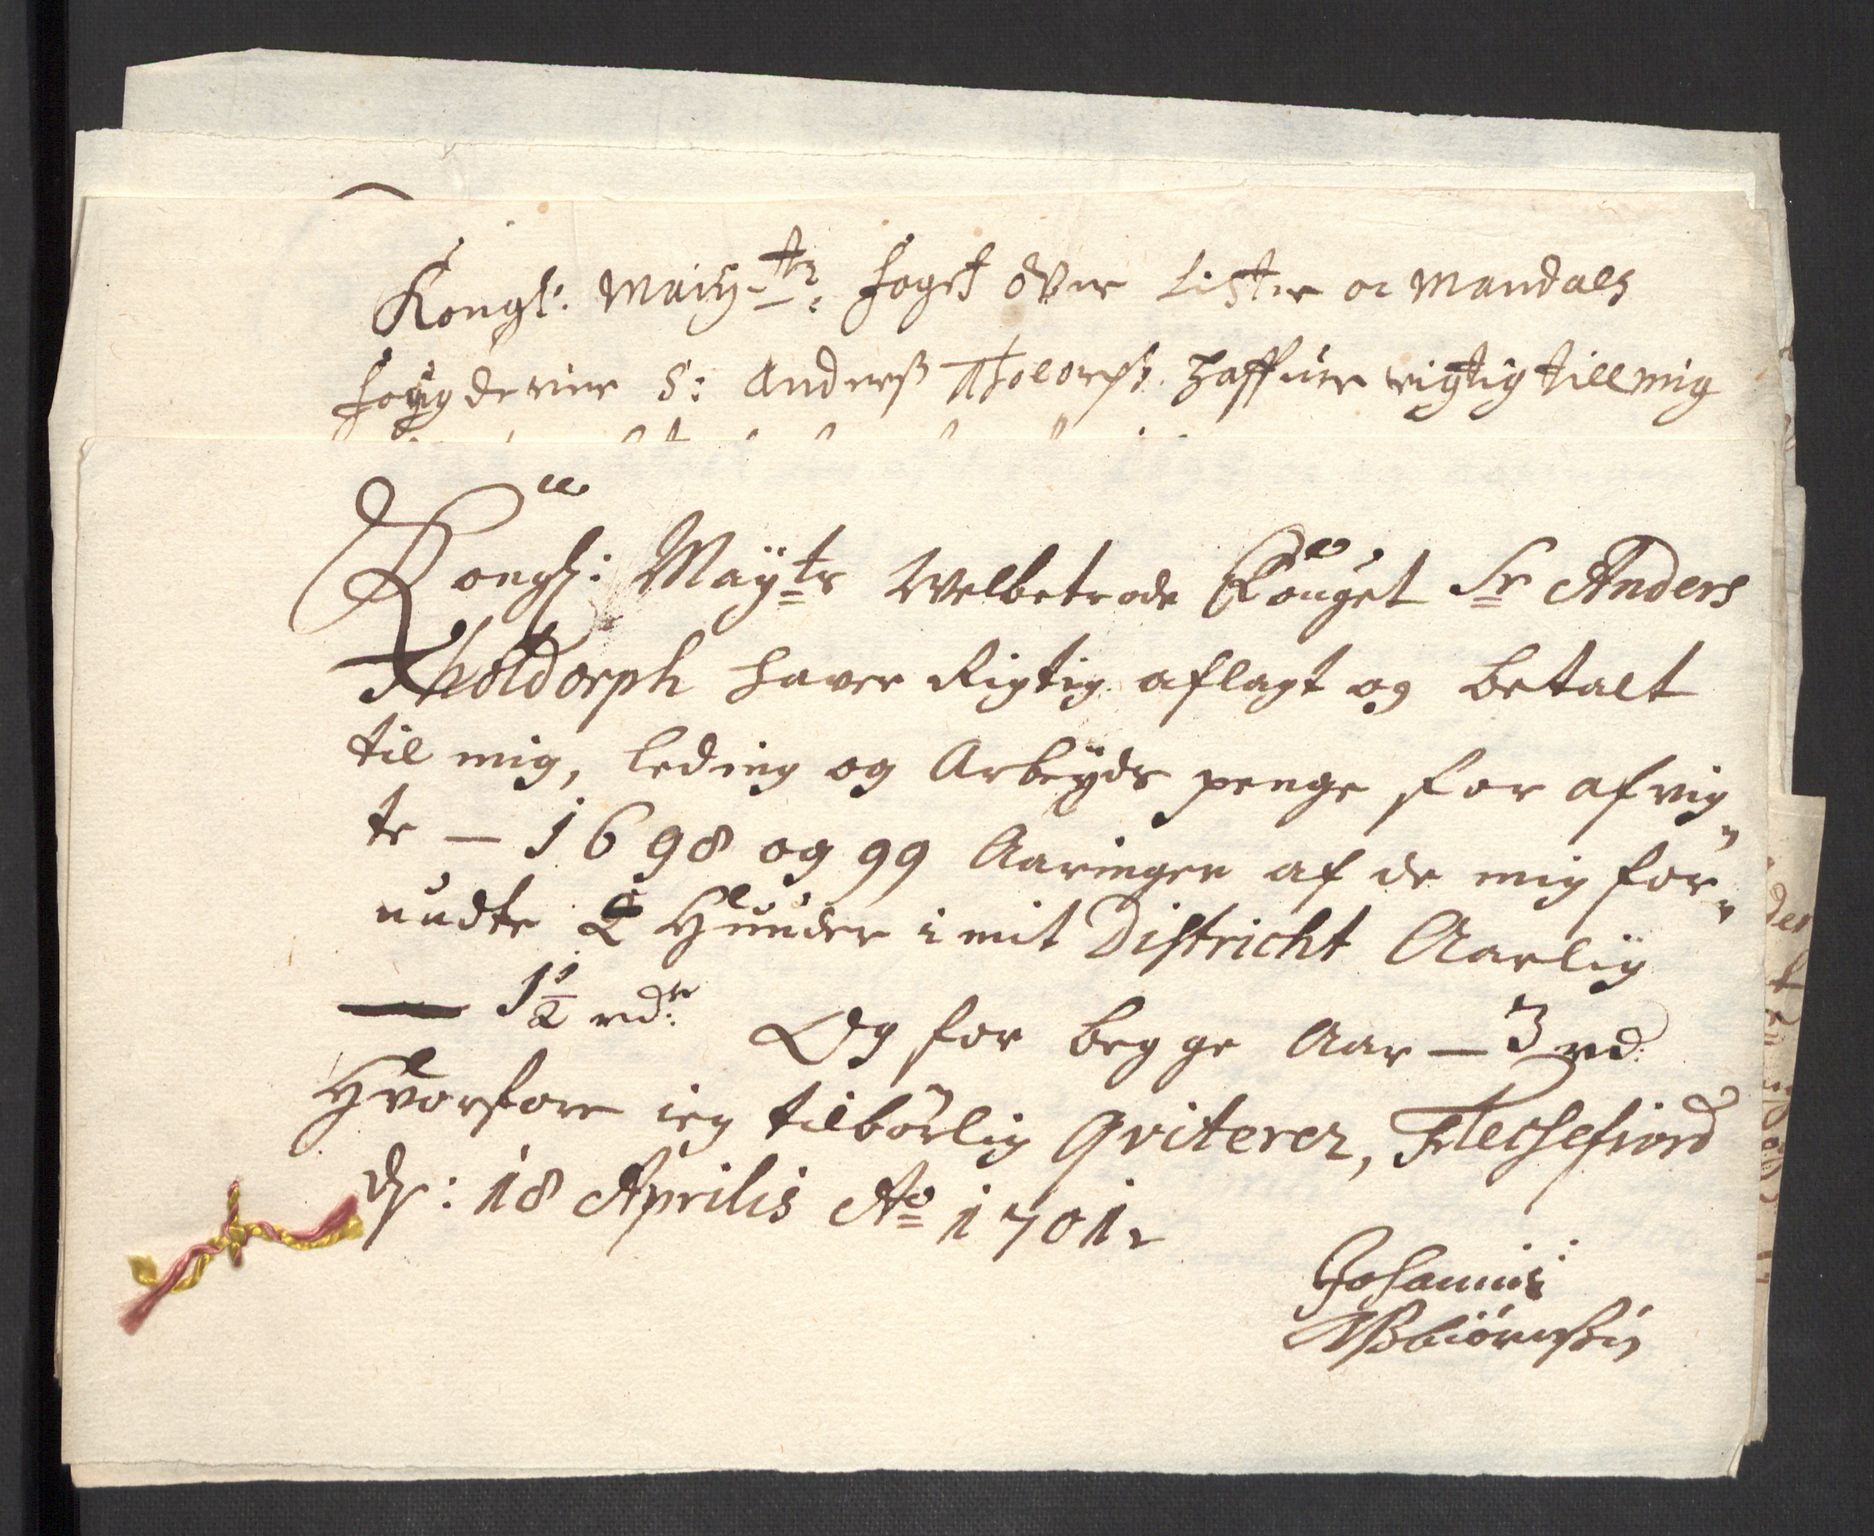 Kongl: Maÿ-tz foget över Lister oc Mandals
fougderier S: Anderß Tholorph haffuer rigtig till mig
Kongl: Maÿts Welbetrode Fouget Sr Anders
Tholdorph haver Rigtig aflagt og betalt
til mig, leding og Arbeÿds penge for afvig„
te – 1698 og 99 Aaringer af de mig for„
undte 2 Hunder i mit Districht Aarlig
— 1½ rdr: Og for begge Aar – 3 rd:
Hvorfore ieg tilbörlig Qviterer, Fleche fiord
ds: 18 Aprilis Ao 1701.
Johannis
Aßbiörnßin